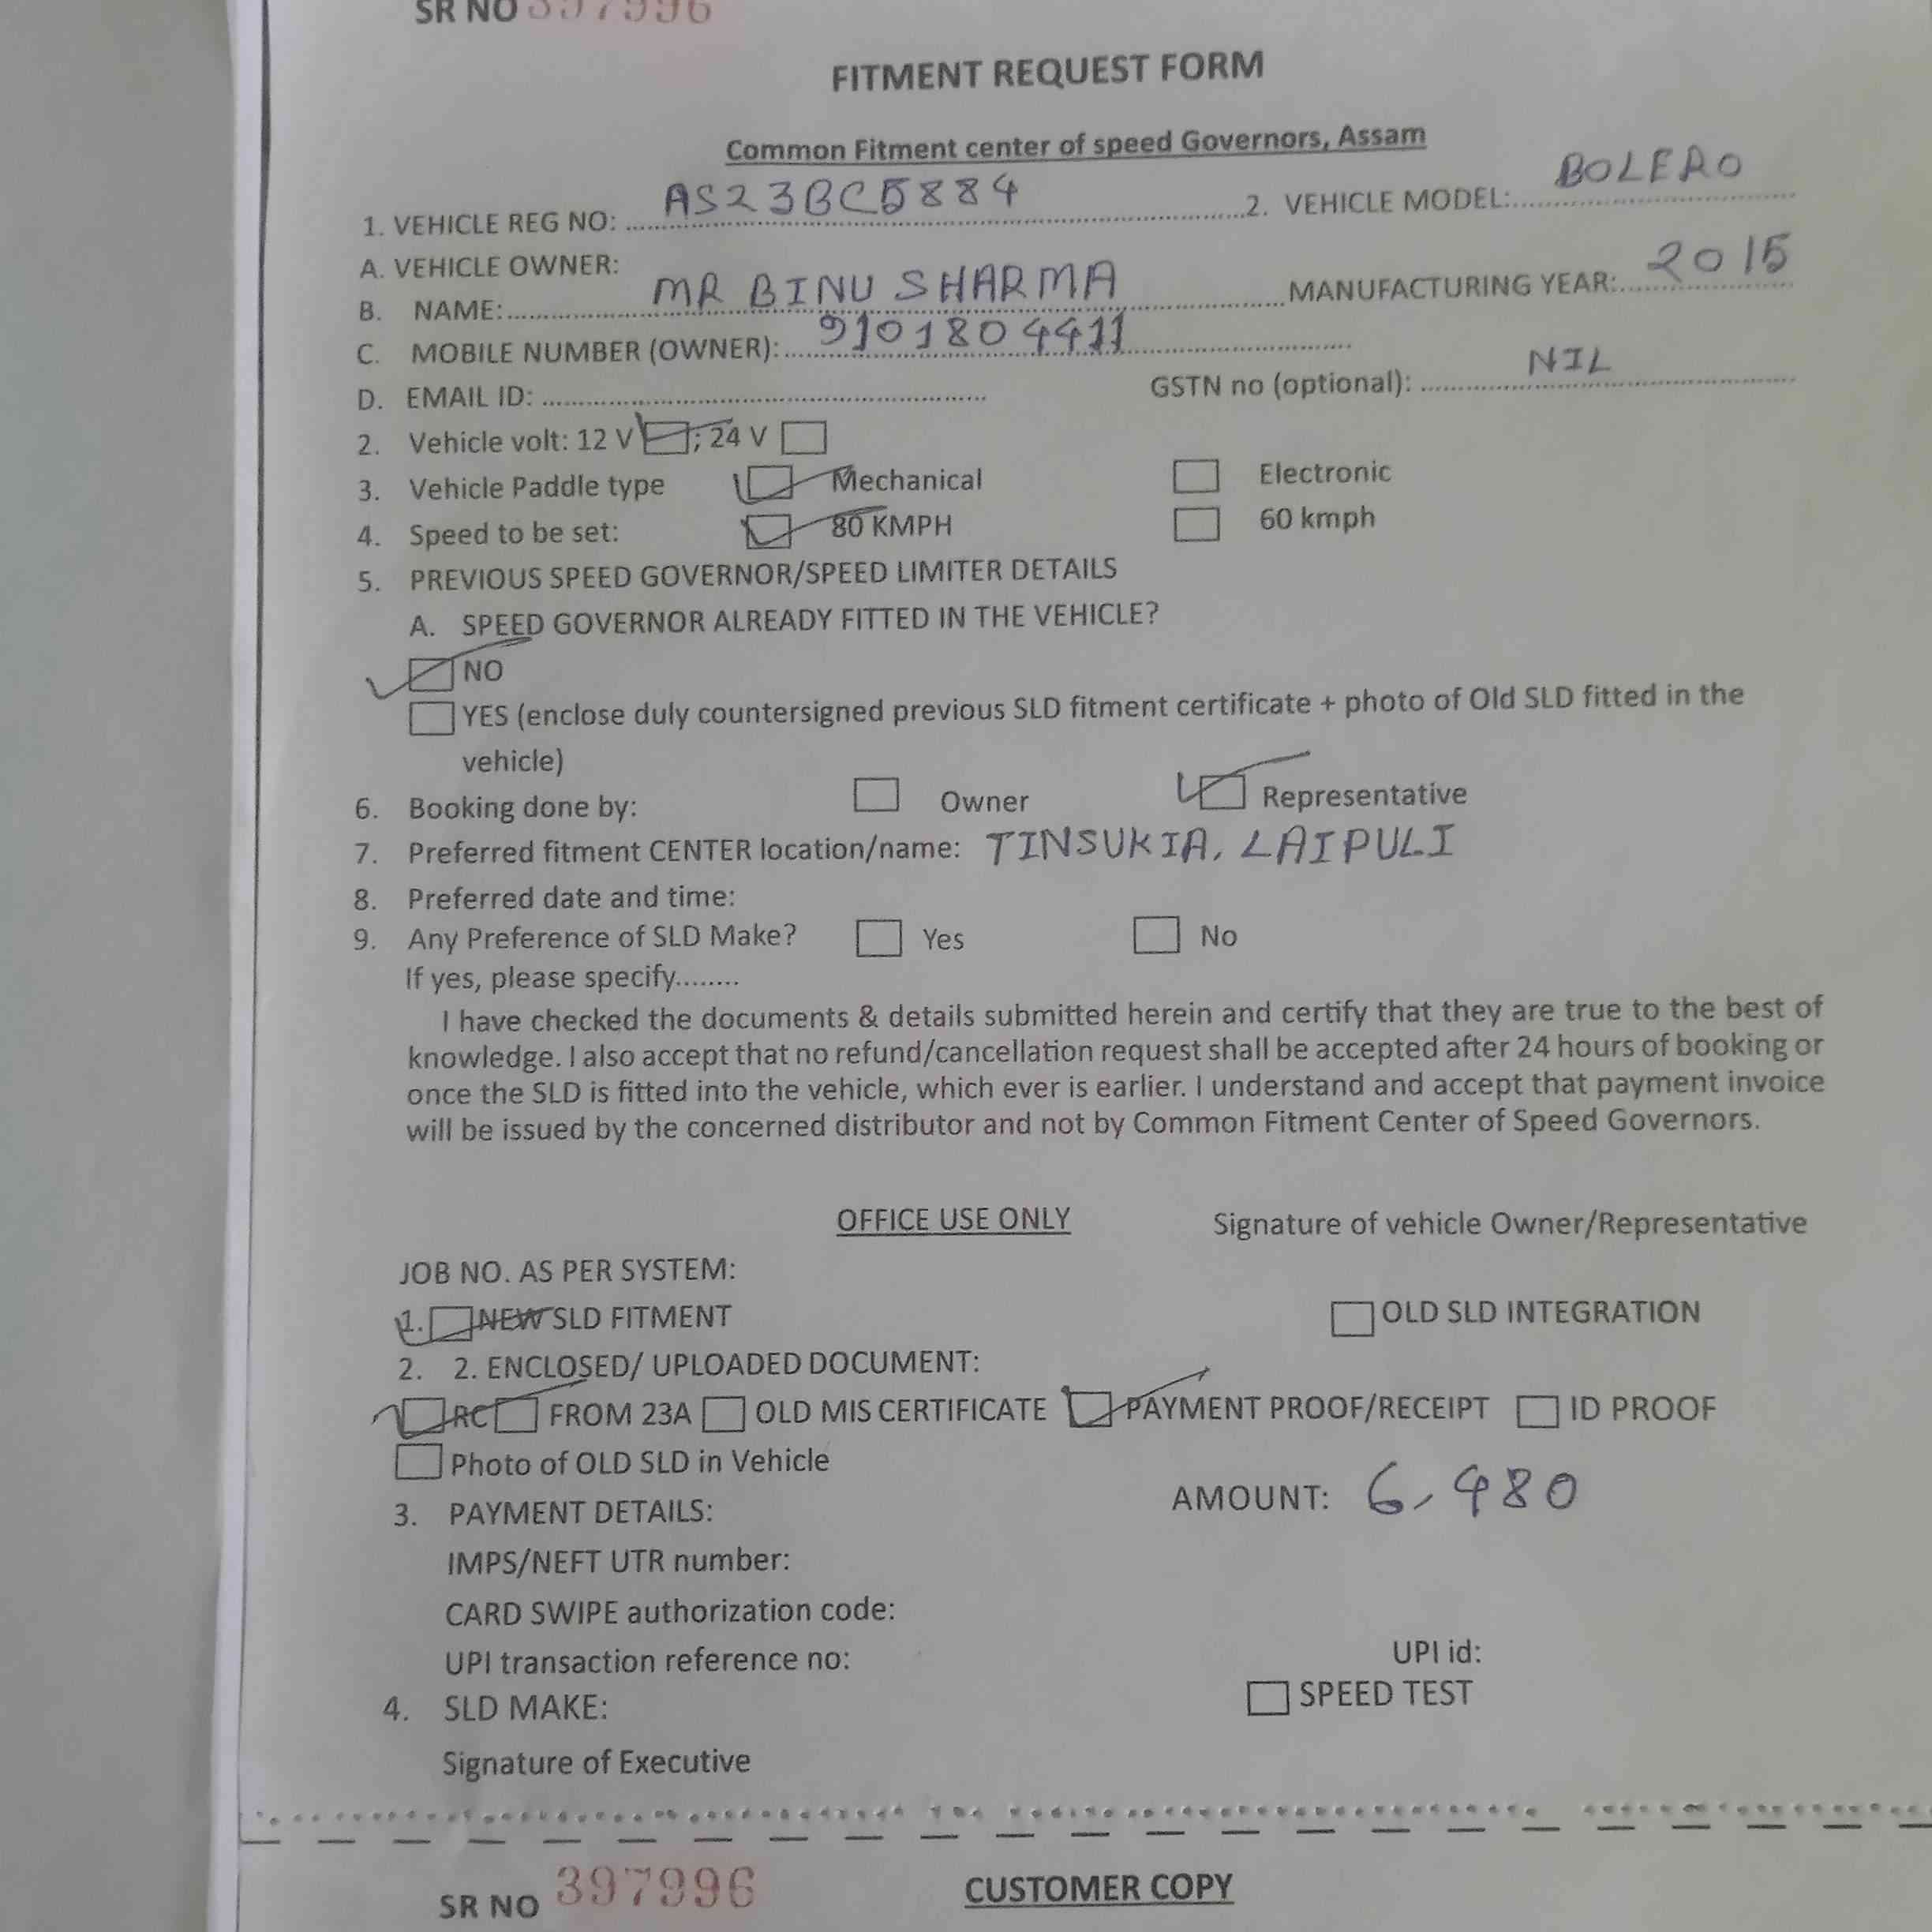 SR NO 397996
FITMENT REQUEST FORM
Common Fitment center of speed Governors, Assam
1. VEHICLE REG NO: AS23BC5884 2. VEHICLE MODEL: BOLERO
A. VEHICLE OWNER:
B. NAME: MR BINU SHARMA MANUFACTURING YEAR: 2015
C. MOBILE NUMBER (OWNER): 9101804411
D. EMAIL ID: GSTN no (optional): NIL
2. Vehicle volt: 12 V ; 24 V
3. Vehicle Paddle type Mechanical Electronic
4. Speed to be set: 80 KMPH 60 kmph
5. PREVIOUS SPEED GOVERNOR/SPEED LIMITER DETAILS
A. SPEED GOVERNOR ALREADY FITTED IN THE VEHICLE?
NO
YES (enclose duly countersigned previous SLD fitment certificate + photo of Old SLD fitted in the
vehicle)
6. Booking done by: Owner Representative
7. Preferred fitment CENTER location/name: TINSUKIA, LAIPULI
8. Preferred date and time:
9. Any Preference of SLD Make? Yes No
If yes, please specify........
I have checked the documents & details submitted herein and certify that they are true to the best of
knowledge. I also accept that no refund/cancellation request shall be accepted after 24 hours of booking or
once the SLD is fitted into the vehicle, which ever is earlier. I understand and accept that payment invoice
will be issued by the concerned distributor and not by Common Fitment Center of Speed Governors.
OFFICE USE ONLY Signature of vehicle Owner/Representative
JOB NO. AS PER SYSTEM:
1. NEW SLD FITMENT OLD SLD INTEGRATION
2. 2. ENCLOSED/ UPLOADED DOCUMENT:
RC FROM 23A OLD MIS CERTIFICATE PAYMENT PROOF/RECEIPT ID PROOF
Photo of OLD SLD in Vehicle
3. PAYMENT DETAILS: AMOUNT: 6,480
IMPS/NEFT UTR number:
CARD SWIPE authorization code:
UPI transaction reference no: UPI id:
4. SLD MAKE: SPEED TEST
Signature of Executive
SR NO 397996 CUSTOMER COPY